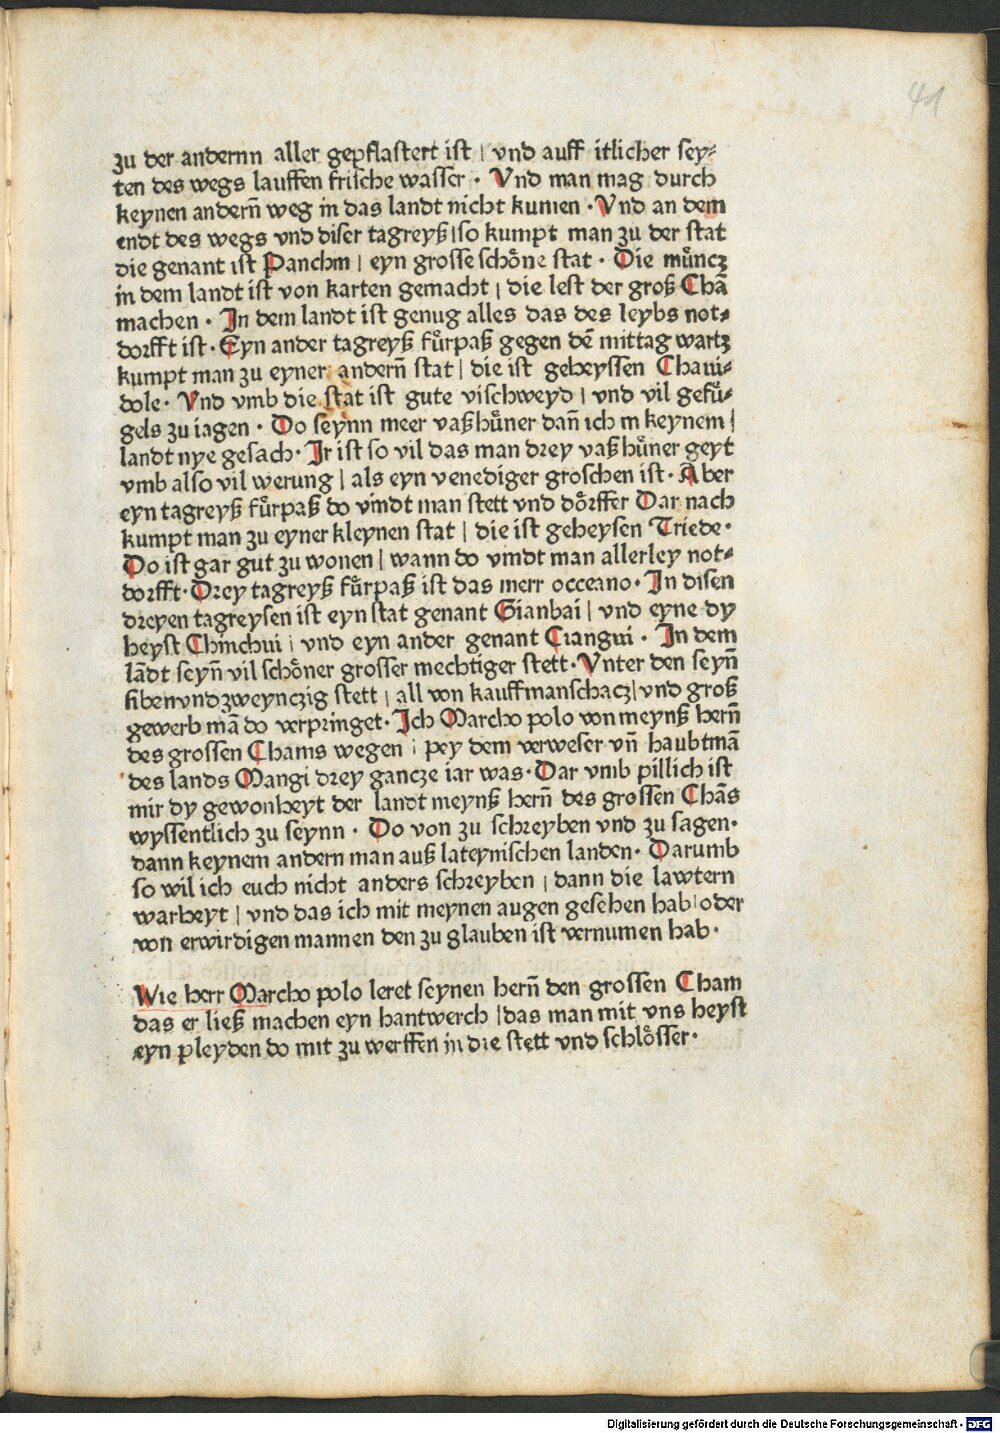 41
zu der andernn aller gepflastert ist | vnd auff itlicher sey⸗
ten des wegs lauffen frische wasser · Vnd man mag durch
keynen andern̄ weg in das landt nicht kumen · Vnd an dem
endt des wegs vnd diser tagreyß | so kumpt man zu der stat
die genant ist Panchm | eyn grosse schoͤne stat · Die muͤncz
in dem landt ist von karten gemacht | die lest der groß Chā
machen · In dem landt ist genug alles das des leybs not⸗
dorfft ist · Eyn ander tagreyß fuͤrpaß gegen dē mittag wartz
kumpt man zu eyner andern̄ stat | die ist geheyssen Chaui⸗
dole · Vnd vmb die stat ist gute vischweyd | vnd vil gefuͤ⸗
gels zu iagen · Do seynn meer vaßhuͤner dan̄ ich in keynem |
landt nye gesach · Ir ist so vil das man drey vaßhuͤner geyt
vmb also vil werung | als eyn venediger groschen ist · Aber
eyn tagreyß fuͤrpaß do vindt man stett vnd doͤrffer Dar nach
kumpt man zu eyner kleynen stat | die ist geheysen Triede ·
Do ist gar gut zu wonen | wann do vindt man allerley not⸗
dorfft · Drey tagreyß fuͤrpaß ist das merr occeano · In disen
dreyen tagreysen ist eyn stat genant Gianbai | vnd eyne dy
heyst Chinchui | vnd eyn ander genant Ciangui · In dem
lādt seyn̄ vil schoͤner grosser mechtiger stett · Vnter den seyn̄
sibenvndzweynczig stett | all von kauffmanschacz | vnd groß
gewerb mā do verpringet · Ich Marcho polo von meynß hern̄
des grossen Chams wegen | pey dem verweser vn̄ haubtmā
des lands Mangi drey gancze iar was · Dar vmb pillich ist
mir dy gewonheyt der landt meynß hern̄ des grossen Chās
wyssentlich zu seynn · Do von zu schreyben vnd zu sagen ·
dann keynem andern man auß lateynischen landen · Darumb
so wil ich euch nicht anders schreyben | dann die lawtern
warheyt | vnd das ich mit meynen augen gesehen hab | oder
von erwirdigen mannen den zu glauben ist vernumen hab ·
Wie herr Marcho polo leret seynen hern̄ den grossen Cham
das er ließ machen eyn hantwerch | das man mit vns heyst
eyn pleyden do mit zu werffen in die stett vnd schloͤsser ·
Digitalisierung gefördert durch die Deutsche Forschungsgemeinschaft - DFG